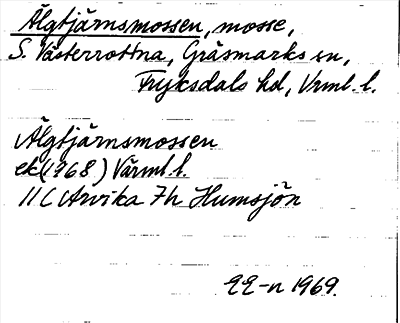 Älgtjärnsmossen, mosse,
S. Västerrottna, Gräsmarks sn,
Fryksdals hd, Vrml. l.
Älgtjärnsmossen
ek (1968) Värml. l.
11C Arvika 7h Humsjön
1969.